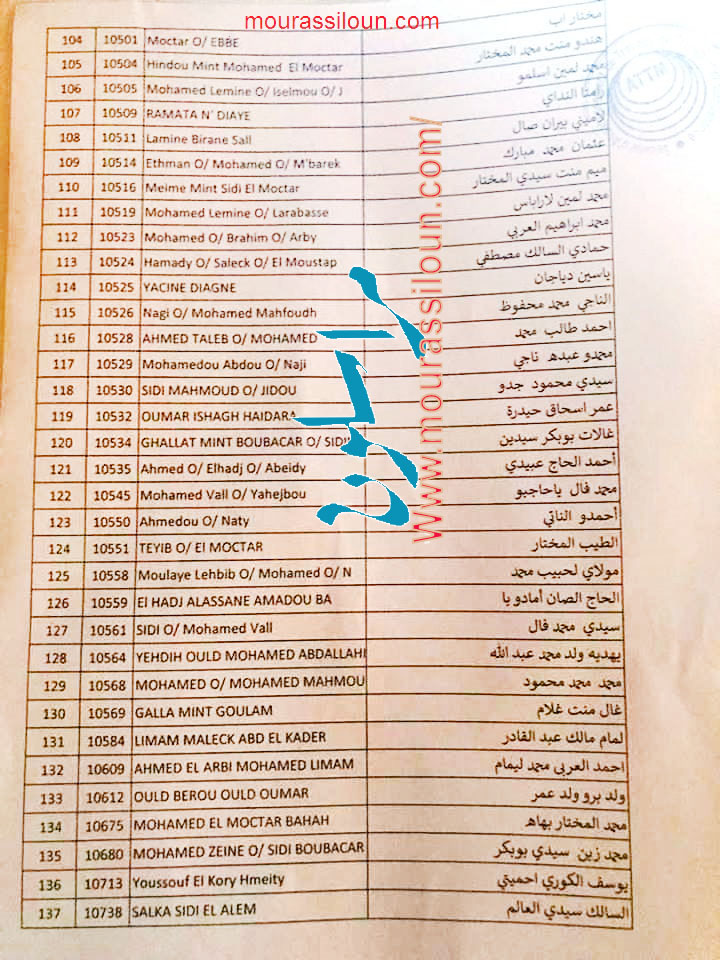 mourassiloun.com
104 10501 Moctar O/ EBBE مختار اب
105 10504 Hindou Mint Mohamed El Moctar هندو منت محمد المختار
106 10505 Mohamed Lemine O/ Iselmou O/ J محمد لمين اسلمو
107 10509 RAMATA N' DIAYE رامتا النداي
108 10511 Lamine Birane Sall لاميني بيران صال
109 10514 Ethman O/ Mohamed O/ M'barek عثمان محمد مبارك
110 10516 Meime Mint Sidi El Moctar ميم منت سيدي المختار
111 10519 Mohamed Lemine O/ Larabasse محمد لمين لاراباس
112 10523 Mohamed O/ Brahim O/ Arby محمد ابراهيم العربي
113 10524 Hamady O/ Saleck O/ El Moustap حمادي السالك مصطفي
114 10525 YACINE DIAGNE ياسين دياجان
115 10526 Nagi O/ Mohamed Mahfoudh الناجي محمد محفوظ
116 10528 AHMED TALEB O/ MOHAMED احمد طالب محمد
117 10529 Mohamedou Abdou O/ Naji محمدو عبده ناجي
118 10530 SIDI MAHMOUD O/ JIDOU سيدي محمود جدو
119 10532 OUMAR ISHAGH HAIDARA عمر اسحاق حيدرة
120 10534 GHALLAT MINT BOUBACAR O/ SIDI غالات بوبكر سيدين
121 10535 Ahmed O/ Elhadj O/ Abeidy أحمد الحاج عبيدي
122 10545 Mohamed Vall O/ Yahejbou محمد فال ياحاجبو
123 10550 Ahmedou O/ Naty أحمدو الناتي
124 10551 TEYIB O/ El MOCTAR الطيب المختار
125 10558 Moulaye Lehbib O/ Mohamed O/ N مولاي لحبيب محمد
126 10559 El HADJ ALASSANE AMADOU BA الحاج الصان أمادو با
127 10561 SIDI O/ Mohamed Vall سيدي محمد فال
128 10564 YEHDIH OULD MOHAMED ABDALLAHI يهديه ولد محمد عبد الله
129 10568 MOHAMED O/ MOHAMED MAHMOU محمد محمد محمود
130 10569 GALLA MINT GOULAM غال منت غلام
131 10584 LIMAM MALECK ABD EL KADER لمام مالك عبد القادر
132 10609 AHMED EL ARBI MOHAMED LIMAM احمد العربى محمد ليمام
133 10612 OULD BEROU OULD OUMAR ولد برو ولد عمر
134 10675 MOHAMED EL MOCTAR BAHAH محمد المختار بهاه
135 10680 MOHAMED ZEINE O/ SIDI BOUBACAR محمد زين سيدي بوبكر
136 10713 Youssouf El Kory Hmeity يوسف الكوري احميتي
137 10738 SALKA SIDI EL ALEM السالك سيدي العالم
ATTM
المراسلون
www.mourassiloun.com/